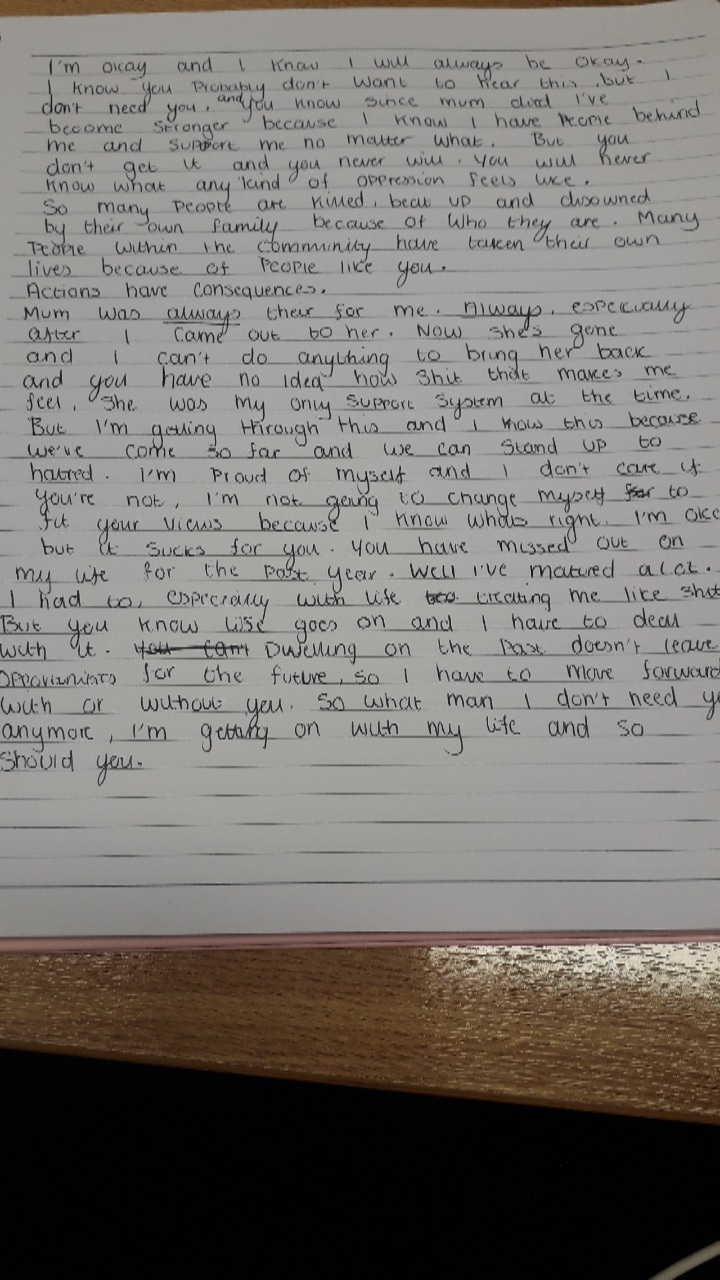 I'm okay and I know I will always be okay.
I know you probably don't want to hear this, but I
don't need you, and you know since mum died I've
become stronger because I know I have people behind
me and support me no matter what. But you
don't get it and you never will. You will never
know what any kind of oppression feels like.
So many people are killed, beat up and disowned
by their own family because of who they are. Many
People within the community have taken their own
lives because of people like you.
Actions have consequences.
Mum was always their for me. Always, especially
after I came out to her. Now she's gone
and I can't do anything to bring her back
and you have no idea how shit that makes me
feel. She was my only support system at the time.
But I'm getting through this and I know this because
we've come so far and we can stand up to
hatred. I'm proud of myself and I don't care if
you're not, I'm not going to change myself for to
fit your views because I know whats right. I'm oke
but it sucks for you. You have missed out on
my life for the past year. Well I've matured alot.
I had to, especially with life treating me like shit
But you know life goes on and I have to deal
with it. You can't Dwelling on the past doesn't leave
opportunities for the future, so I have to move forward
with or without you. So what man I don't need y
anymore, I'm getting on with my life and so
should you.